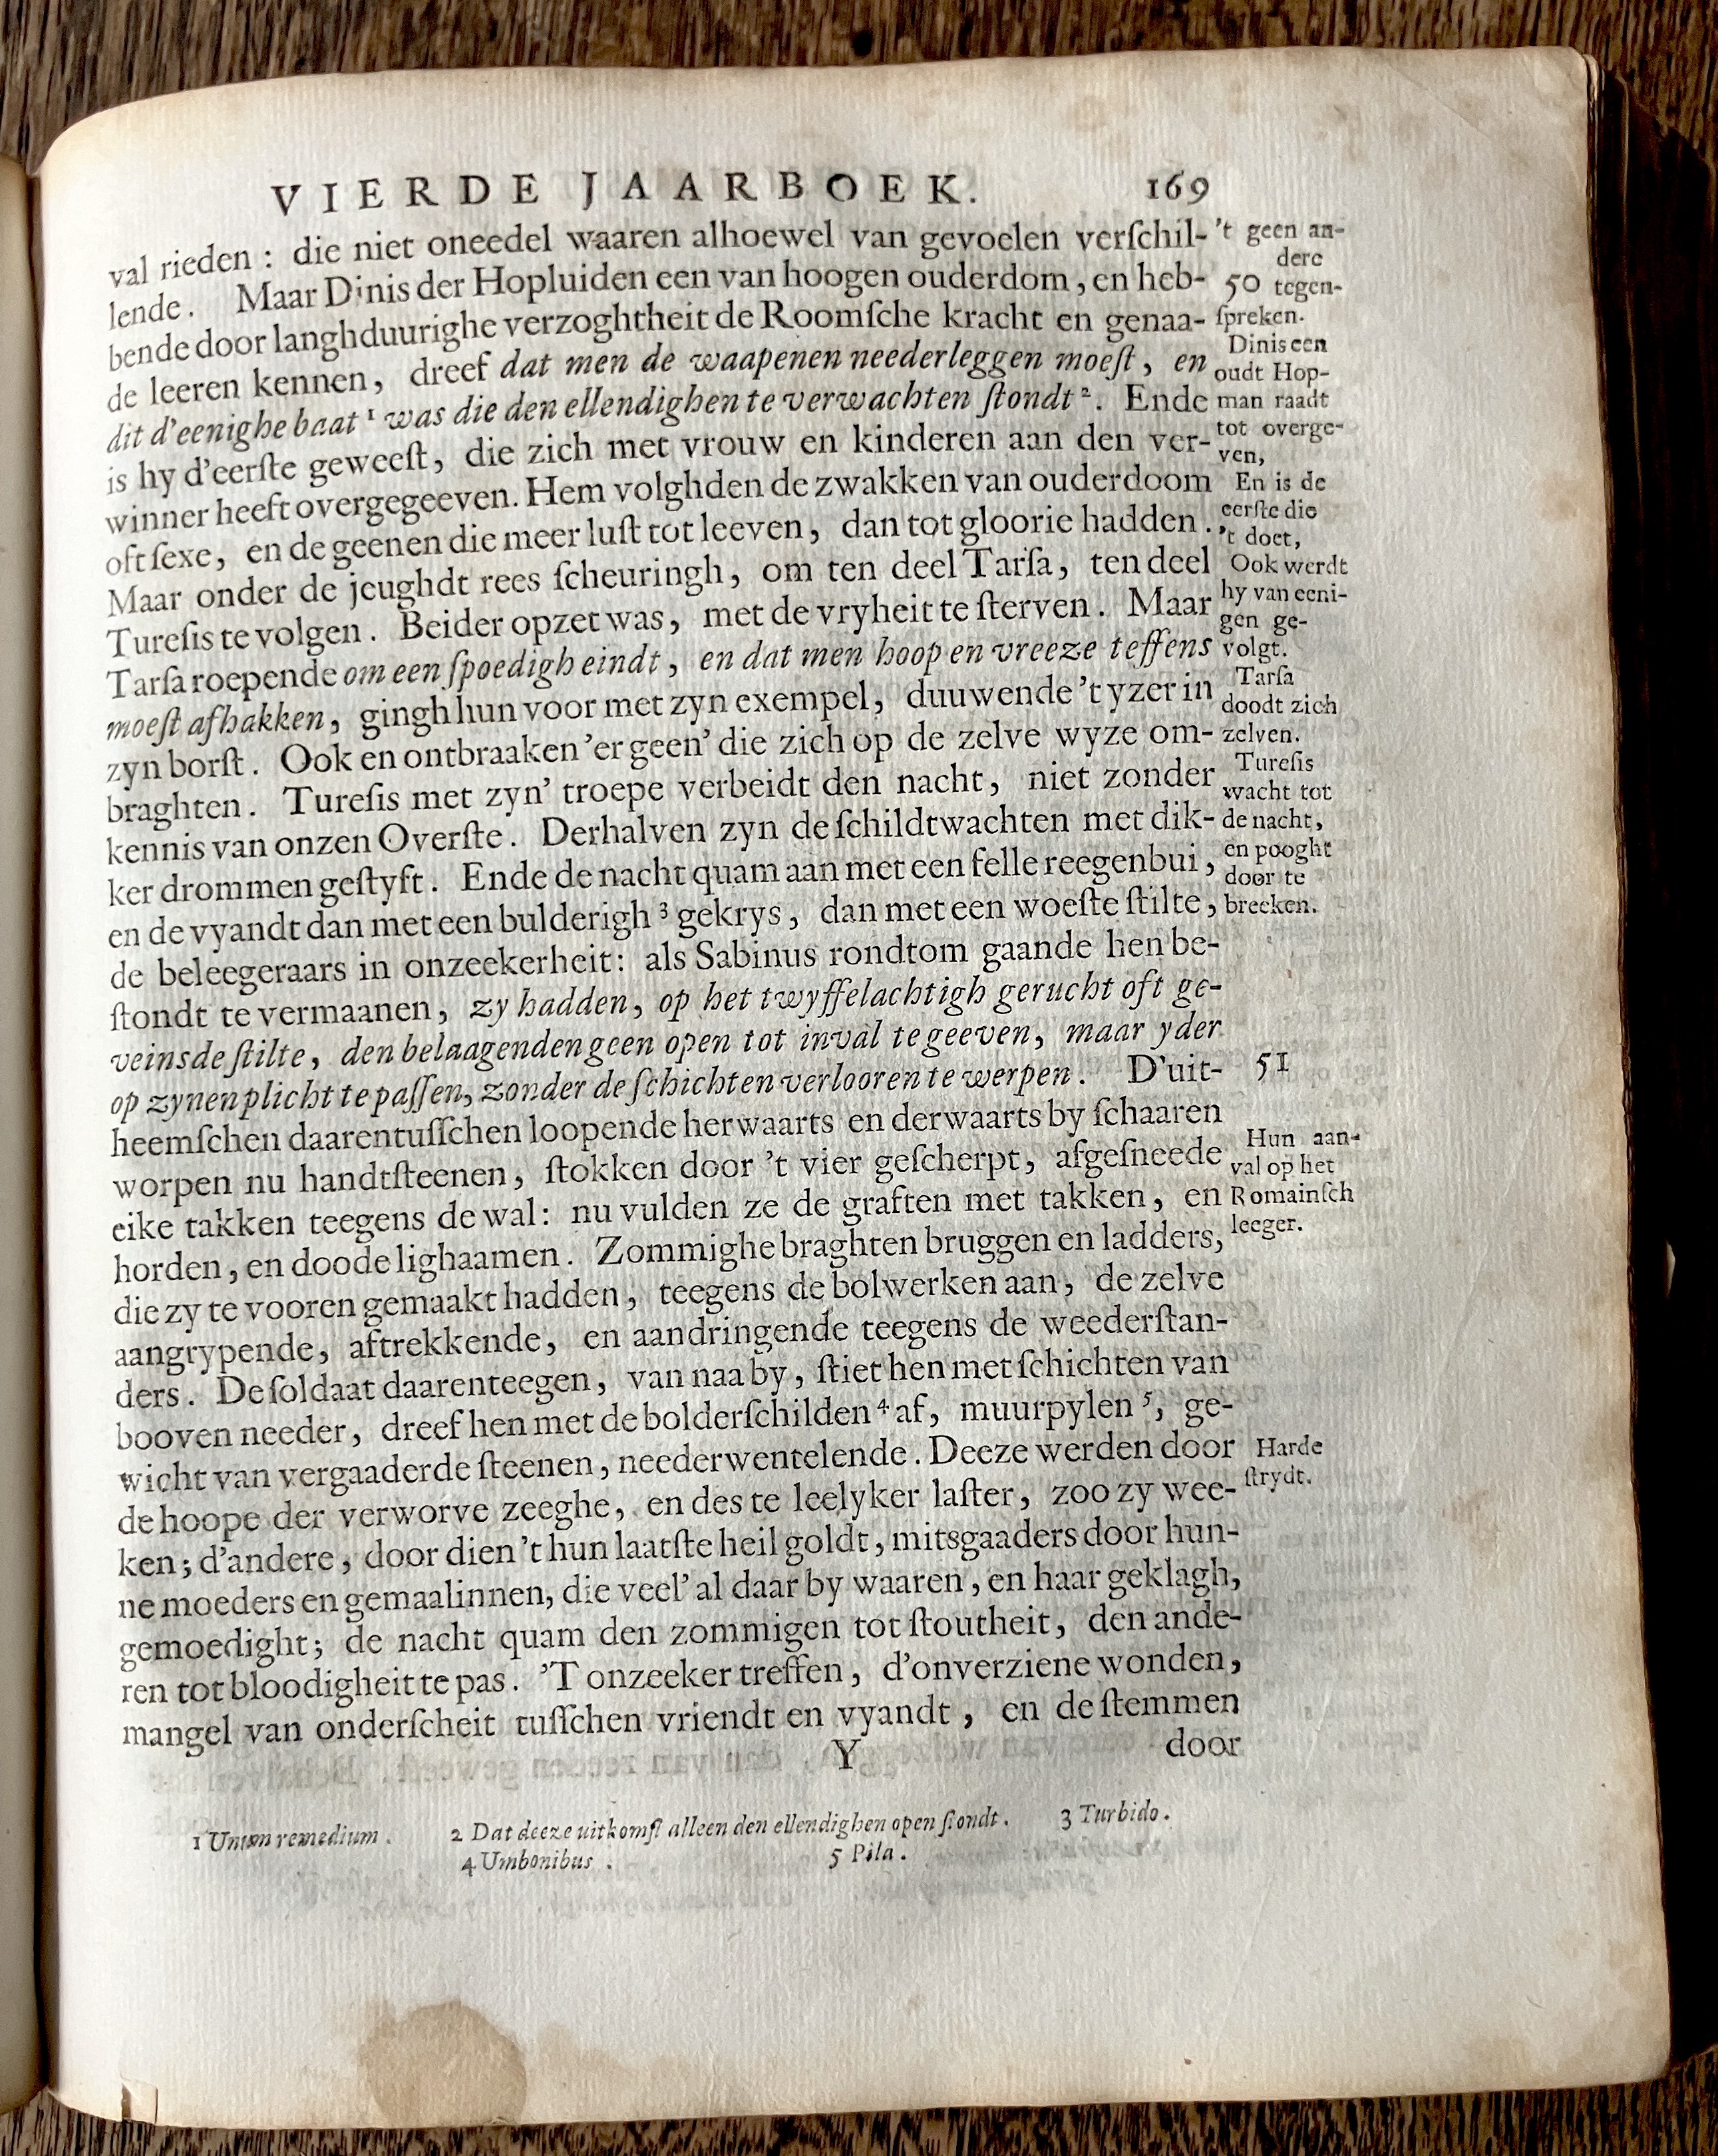 VIERDE JAARBOEK. 169
val rieden : die niet oneedel waaren alhoewel van gevoelen verſchil-
lende. Maar Dinis der Hopluiden een van hoogen ouderdom, en heb-
bende door langhduurighe verzoghtheit de Roomſche kracht en genaa-
de leeren kennen, dreef dat men de waapenen neederleggen moeſt, en
dit d'eenighe baat 1 was die den ellendighen te verwachten ſtondt 2. Ende
is hy d'eerſte geweeſt, die zich met vrouw en kinderen aan den ver-
winner heeft overgegeeven. Hem volghden de zwakken van ouderdoom
oft ſexe, en de geenen die meer luſt tot leeven, dan tot gloorie hadden.
Maar onder de jeughdt rees ſcheuringh, om ten deel Tarſa, ten deel
Tureſis te volgen. Beider opzet was, met de vryheit te ſterven. Maar
Tarſa roepende om een ſpoedigh eindt, en dat men hoop en vreeze teffens
moeſt afhakken, gingh hun voor met zyn exempel, duuwende 't yzer in
zyn borſt. Ook en ontbraaken 'er geen' die zich op de zelve wyze om-
braghten. Tureſis met zyn' troepe verbeidt den nacht, niet zonder
kennis van onzen Overſte. Derhalven zyn de ſchildtwachten met dik-
ker drommen geſtyft. Ende de nacht quam aan met een felle reegenbui,
en de vyandt dan met een bulderigh 3 gekrys, dan met een woeſte ſtilte,
de beleegeraars in onzeekerheit: als Sabinus rondtom gaande hen be-
ſtondt te vermaanen, zy hadden, op het twyffelachtigh gerucht oft ge-
veinsde ſtilte, den belaagenden geen open tot inval te geeven, maar yder
op zynen plicht te paſſen, zonder de ſchichten verlooren te werpen. D'uit-
heemſchen daarentuſſchen loopende herwaarts en derwaarts by ſchaaren
worpen nu handtſteenen, ſtokken door 't vier geſcherpt, afgeſneede
eike takken teegens de wal: nu vulden ze de graften met takken, en
horden, en doode lighaamen. Zommighe braghten bruggen en ladders,
die zy te vooren gemaakt hadden, teegens de bolwerken aan, de zelve
aangrypende, aftrekkende, en aandringende teegens de weederſtan-
ders. De ſoldaat daarenteegen, van naa by, ſtiet hen met ſchichten van
booven needer, dreef hen met de bolderſchilden 4 af, muurpylen 5, ge-
wicht van vergaaderde ſteenen, neederwentelende. Deeze werden door
de hoope der verworve zeeghe, en des te leelyker laſter, zoo zy wee-
ken; d'andere, door dien 't hun laatſte heil goldt, mitsgaaders door hun-
ne moeders en gemaalinnen, die veel' al daar by waaren, en haar geklagh,
gemoedight; de nacht quam den zommigen tot ſtoutheit, den ande-
ren tot bloodigheit te pas. 'T onzeeker treffen, d'onverziene wonden,
mangel van onderſcheit tuſſchen vriendt en vyandt, en de ſtemmen
Y door
't geen an-
dere
50 tegen-
ſpreken.
Dinis een
oudt Hop-
man raadt
tot overge-
ven,
En is de
eerſte die
't doet,
Ook werdt
hy van eeni-
gen ge-
volgt.
Tarſa
doodt zich
zelven.
Tureſis
wacht tot
de nacht,
en pooght
door te
breeken.
51
Hun aan-
val op het
Romainſch
leeger.
Harde
ſtrydt.
1 Unum remedium. 2 Dat deeze uitkomſt alleen den ellendighen open ſtondt. 3 Turbido.
4 Umbonibus. 5 Pila.